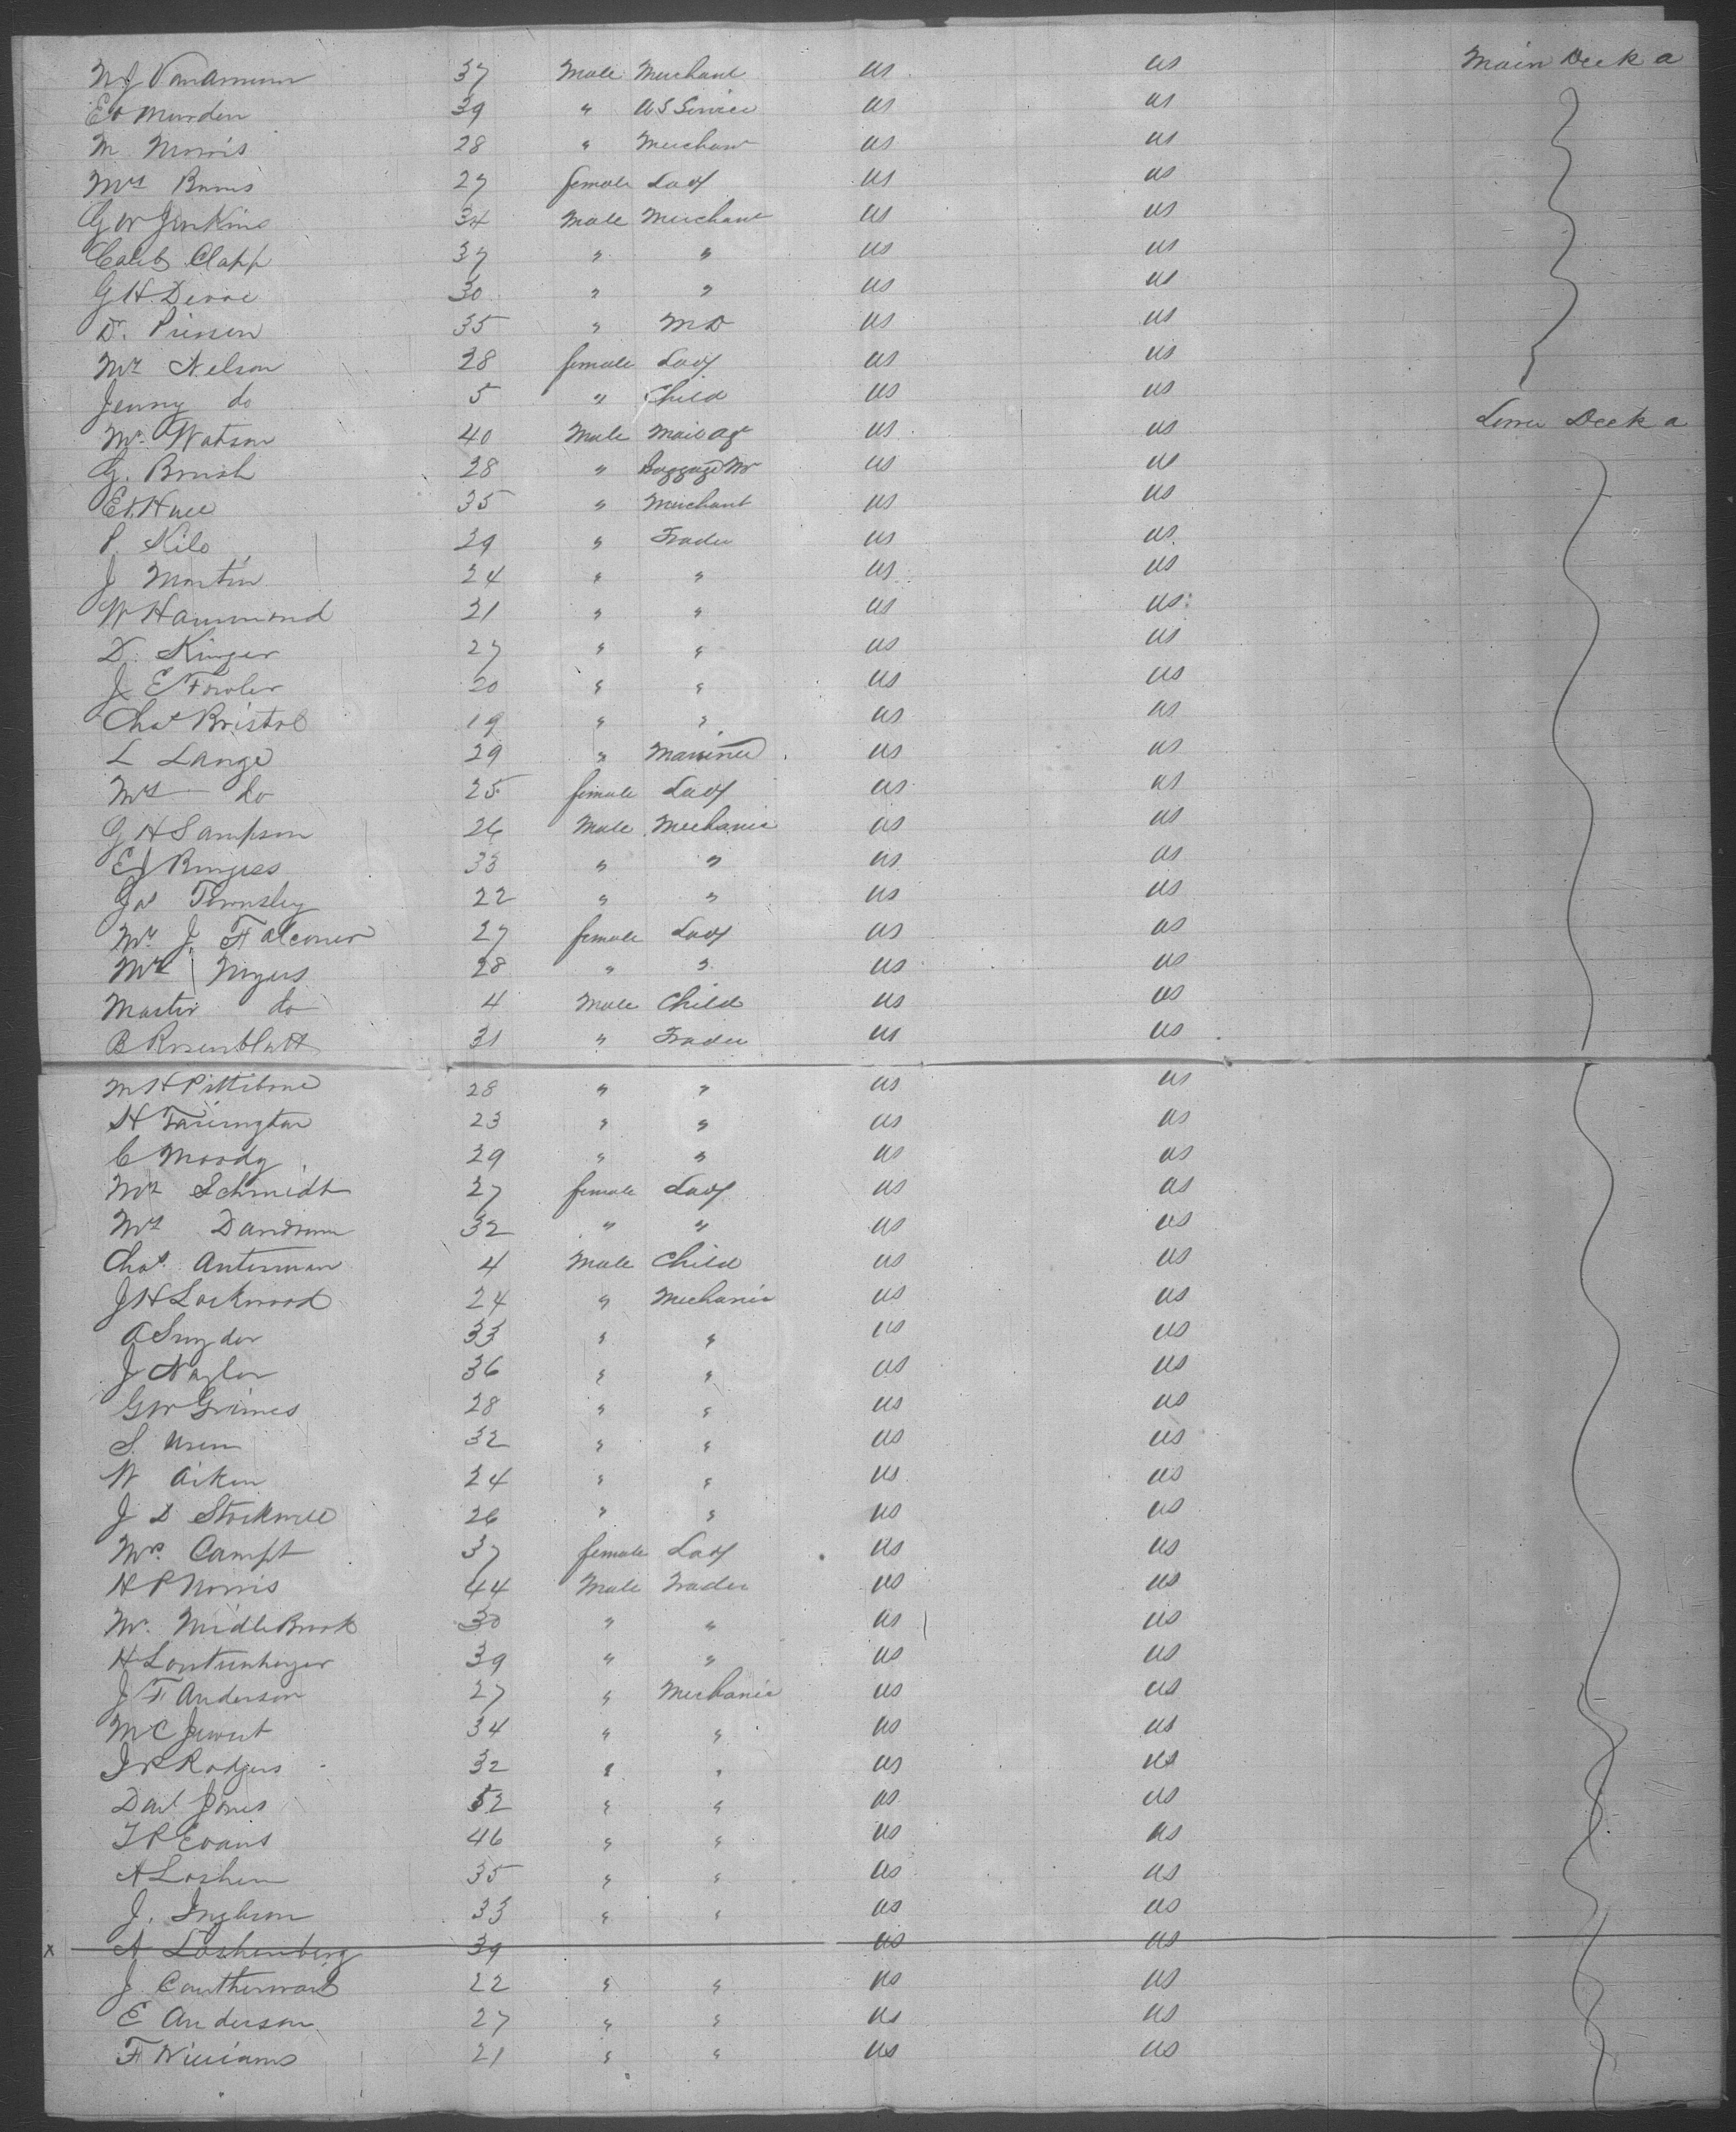 N J Vanamum 37 Male Merchant US US Main Deck a
Ed Murden 39 " US Service US US
M Morris 28 " Merchant US US
Mrs Burns 27 female Lady US US
G W Jenkins 34 Male Merchant US US
Caleb Clapp 37 " " US US
G H Devoe 30 " " US US
D. Pierson 35 " MD US US
Mrs Nelson 28 female Lady US US
Jenny do 5 " Child US US
Mr Watson 40 Male Mail agt US US Lower Deck a
G. Brush 28 " Baggage Mr US US
Ed Hall 35 " Merchant US US
P. Kilo 29 " Trader US US
J Martin 24 " " US US
W Hammond 21 " " US US
D. Kinger 27 " " US US
J E Fowler 20 " " US US
Chas Bristol 19 " " US US
L Lange 29 " Mariner US US
Mrs do 25 female Lady US US
G H Sampson 26 Male Mechanic US US
E J Burgess 33 " " US US
Jas Townsley 22 " " US US
Mrs J. Falconer 27 female Lady US US
Mrs Myers 28 " " US US
Master do 4 Male Child US US
B Rosenblatt 31 " Trader US US
M H Pittibone 28 " " US US
H Farrington 23 " " US US
C Moody 29 " " US US
Mrs Schmidt 27 female Lady US US
Mrs 32 " " US US
Chas. Anterman 4 Male Child US US
J H Lockwood 24 " Mechanic US US
A Snyder 33 " " US US
J Naylor 36 " " US US
G W Grimes 28 " " US US
S. Uren 32 " " US US
W Aiken 24 " " US US
J D Stockwell 26 " " US US
Mrs. Campt 37 female Lady US US
H P Norris 44 Male Trader US US
Mr. MidleBrook 30 " " US US
H 39 " " US US
J F Anderson 27 " Mechanic US US
M C Jewet 34 " " US US
J R Rodgers 32 " " US US
Danl Jones 52 " " US US
T R Evans 46 " " US US
A Loshem 35 " " US US
J. Ingleson 33 " " US US
x A Loshenberg 39 US US
J Couthernard 22 " " US US
E Anderson 27 " " US US
F Williams 21 " " US US